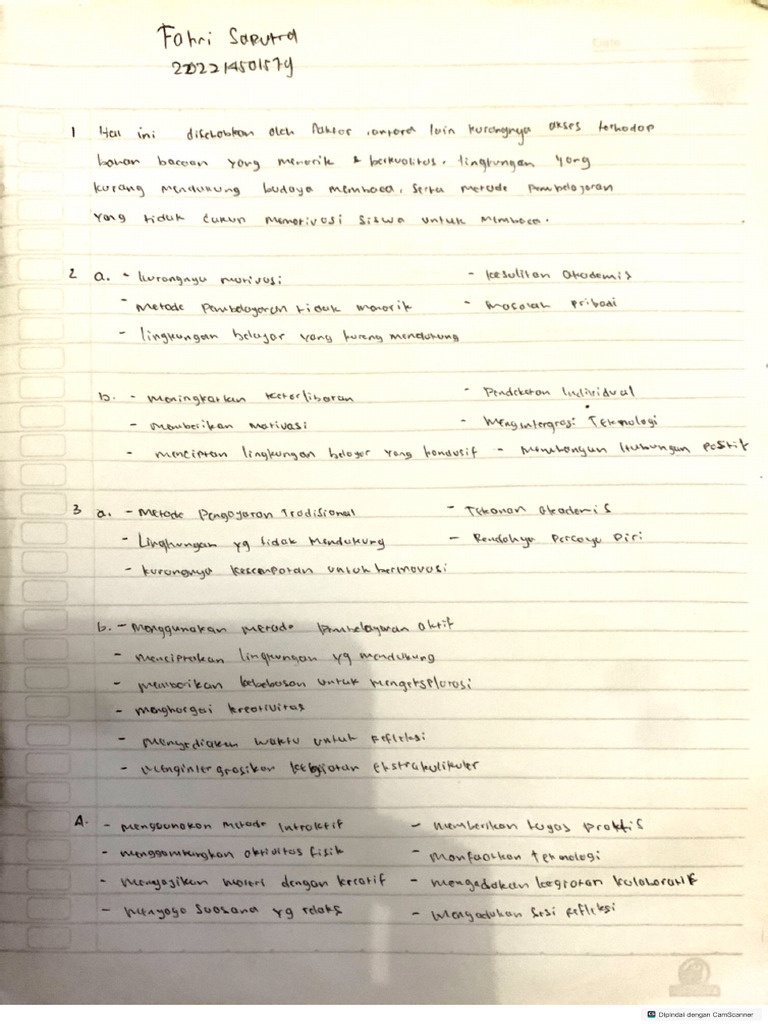 Fahri Saputra
202214501579
Date
1 Hal ini disebabkan oleh faktor, antara lain kurangnya akses terhadap
bahan bacaan yang menarik & berkualitas. lingkungan yang
kurang mendukung budaya membaca, serta metode pembelajaran
yang tidak cukup memotivasi siswa untuk membaca.
2 a. - kurangnya motivasi - kesulitan akademis
- metode pembelajaran tidak menarik - masalah pribadi
- lingkungan belajar yang kurang mendukung
b. - meningkatkan keterlibatan - Pendekatan Individual
- memberikan motivasi - Mengintergrasi Teknologi
- menciptan lingkungan belajar yang kondusif - Membangun Hubungan Positif
3 a. - Metode Pengajaran Tradisional - Tekanan Akademis
- Lingkungan yg tidak Mendukung - Rendahnya Percaya Diri
- kurangnya kesempatan untuk berinovasi
b. - menggunakan metode pembelajaran aktif
- menciptakan lingkungan yg mendukung
- memberikan kebebasan untuk mengeksplorasi
- menghargai kreativitas
- menyediakan waktu untuk refleksi
- mengintergrasikan kegiatan ekstrakulikuler
4. - menggunakan metode Intraktif - memberikan tugas praktis
- menggambungkan aktivitas fisik - manfaatkan teknologi
- menyajikan materi dengan kreatif - mengadakan kegiatan kolaboratif
- menjaga suasana yg relaks - Mengadakan sesi refleksi
Dipindai dengan CamScanner